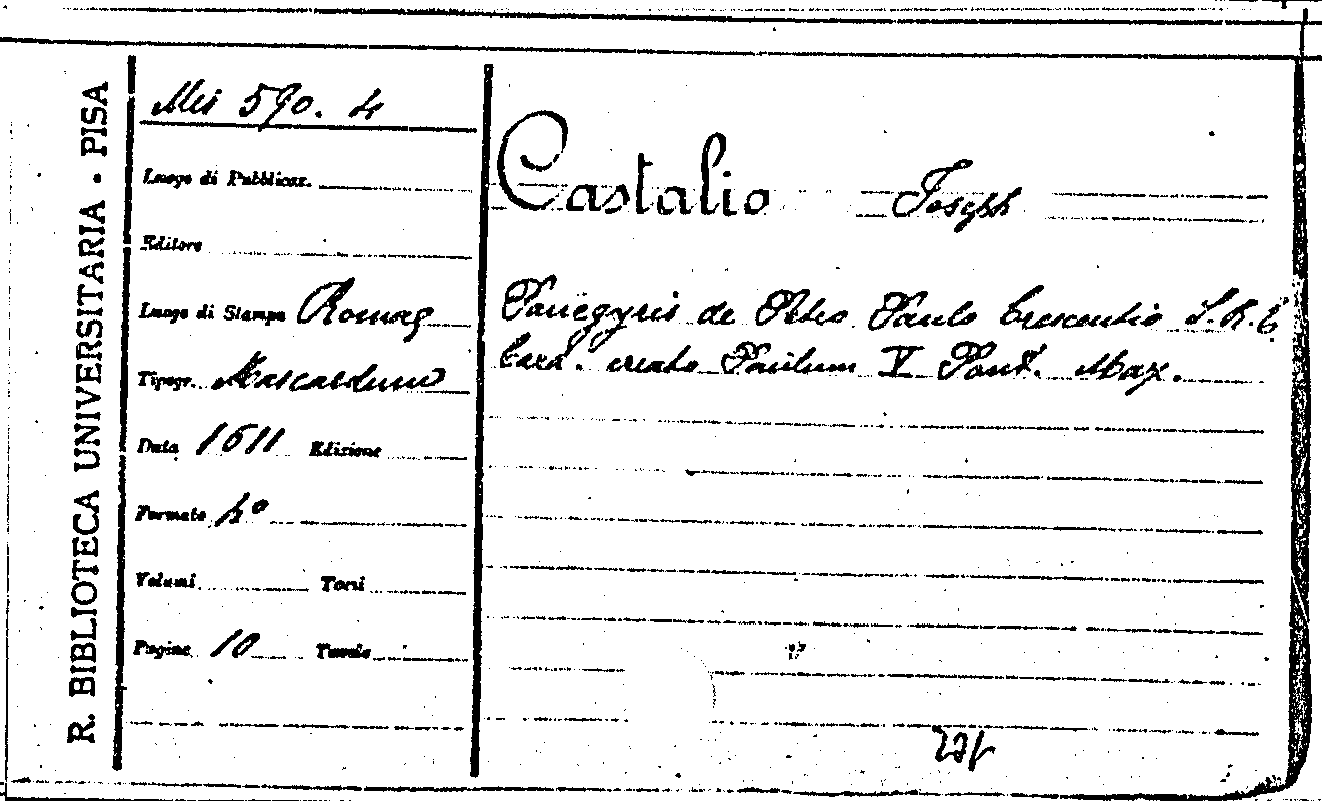 R. BIBLIOTECA UNIVERSITARIA - PISA
Mis 590. 4
Luogo di Pubblicaz.
Editore
Luogo di Stampa Romae
Tipogr. Mascardum
Data 1611 Edizione
Formato 4°
Volumi Tomi
Pagine 10 Tavole
Castalio Joseph
Panegyris de Petro Paulo Crescentio S.R.E
Card. creato Paulum V Pont. Max.